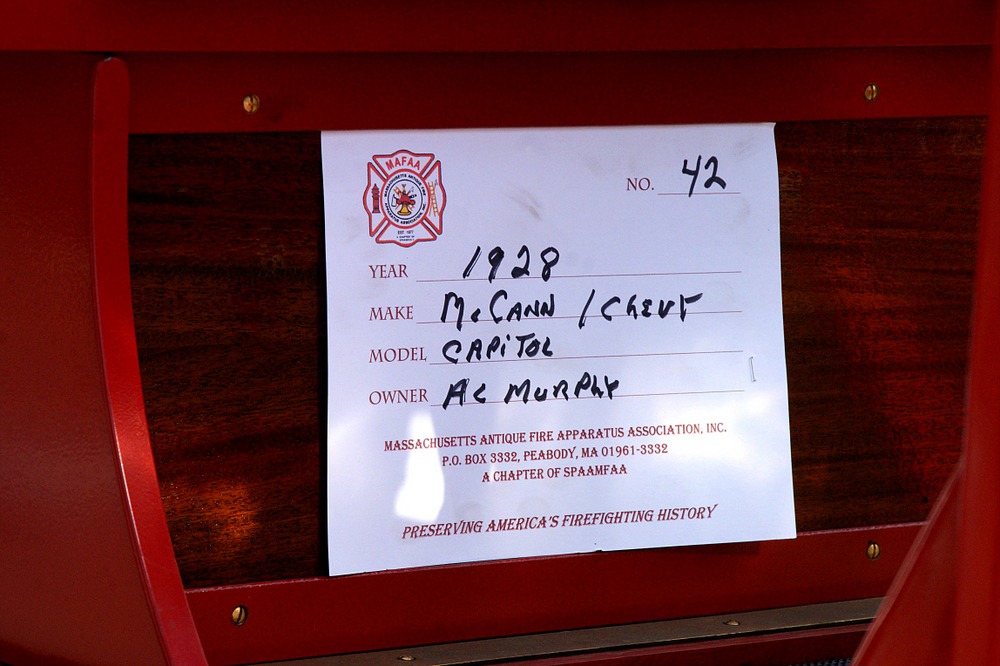 MAFAA
MASSACHUSETTS ANTIQUE FIRE
APPARATUS ASSOCIATION, INC.
EST. 1977
A CHAPTER OF
SPAAMFAA
NO. 42
YEAR 1928
MAKE McCANN / CHEVY
MODEL CAPiTOL
OWNER AL MURPHY
MASSACHUSETTS ANTIQUE FIRE APPARATUS ASSOCIATION, INC.
P.O. BOX 3332, PEABODY, MA 01961-3332
A CHAPTER OF SPAAMFAA
PRESERVING AMERICA'S FIREFIGHTING HISTORY